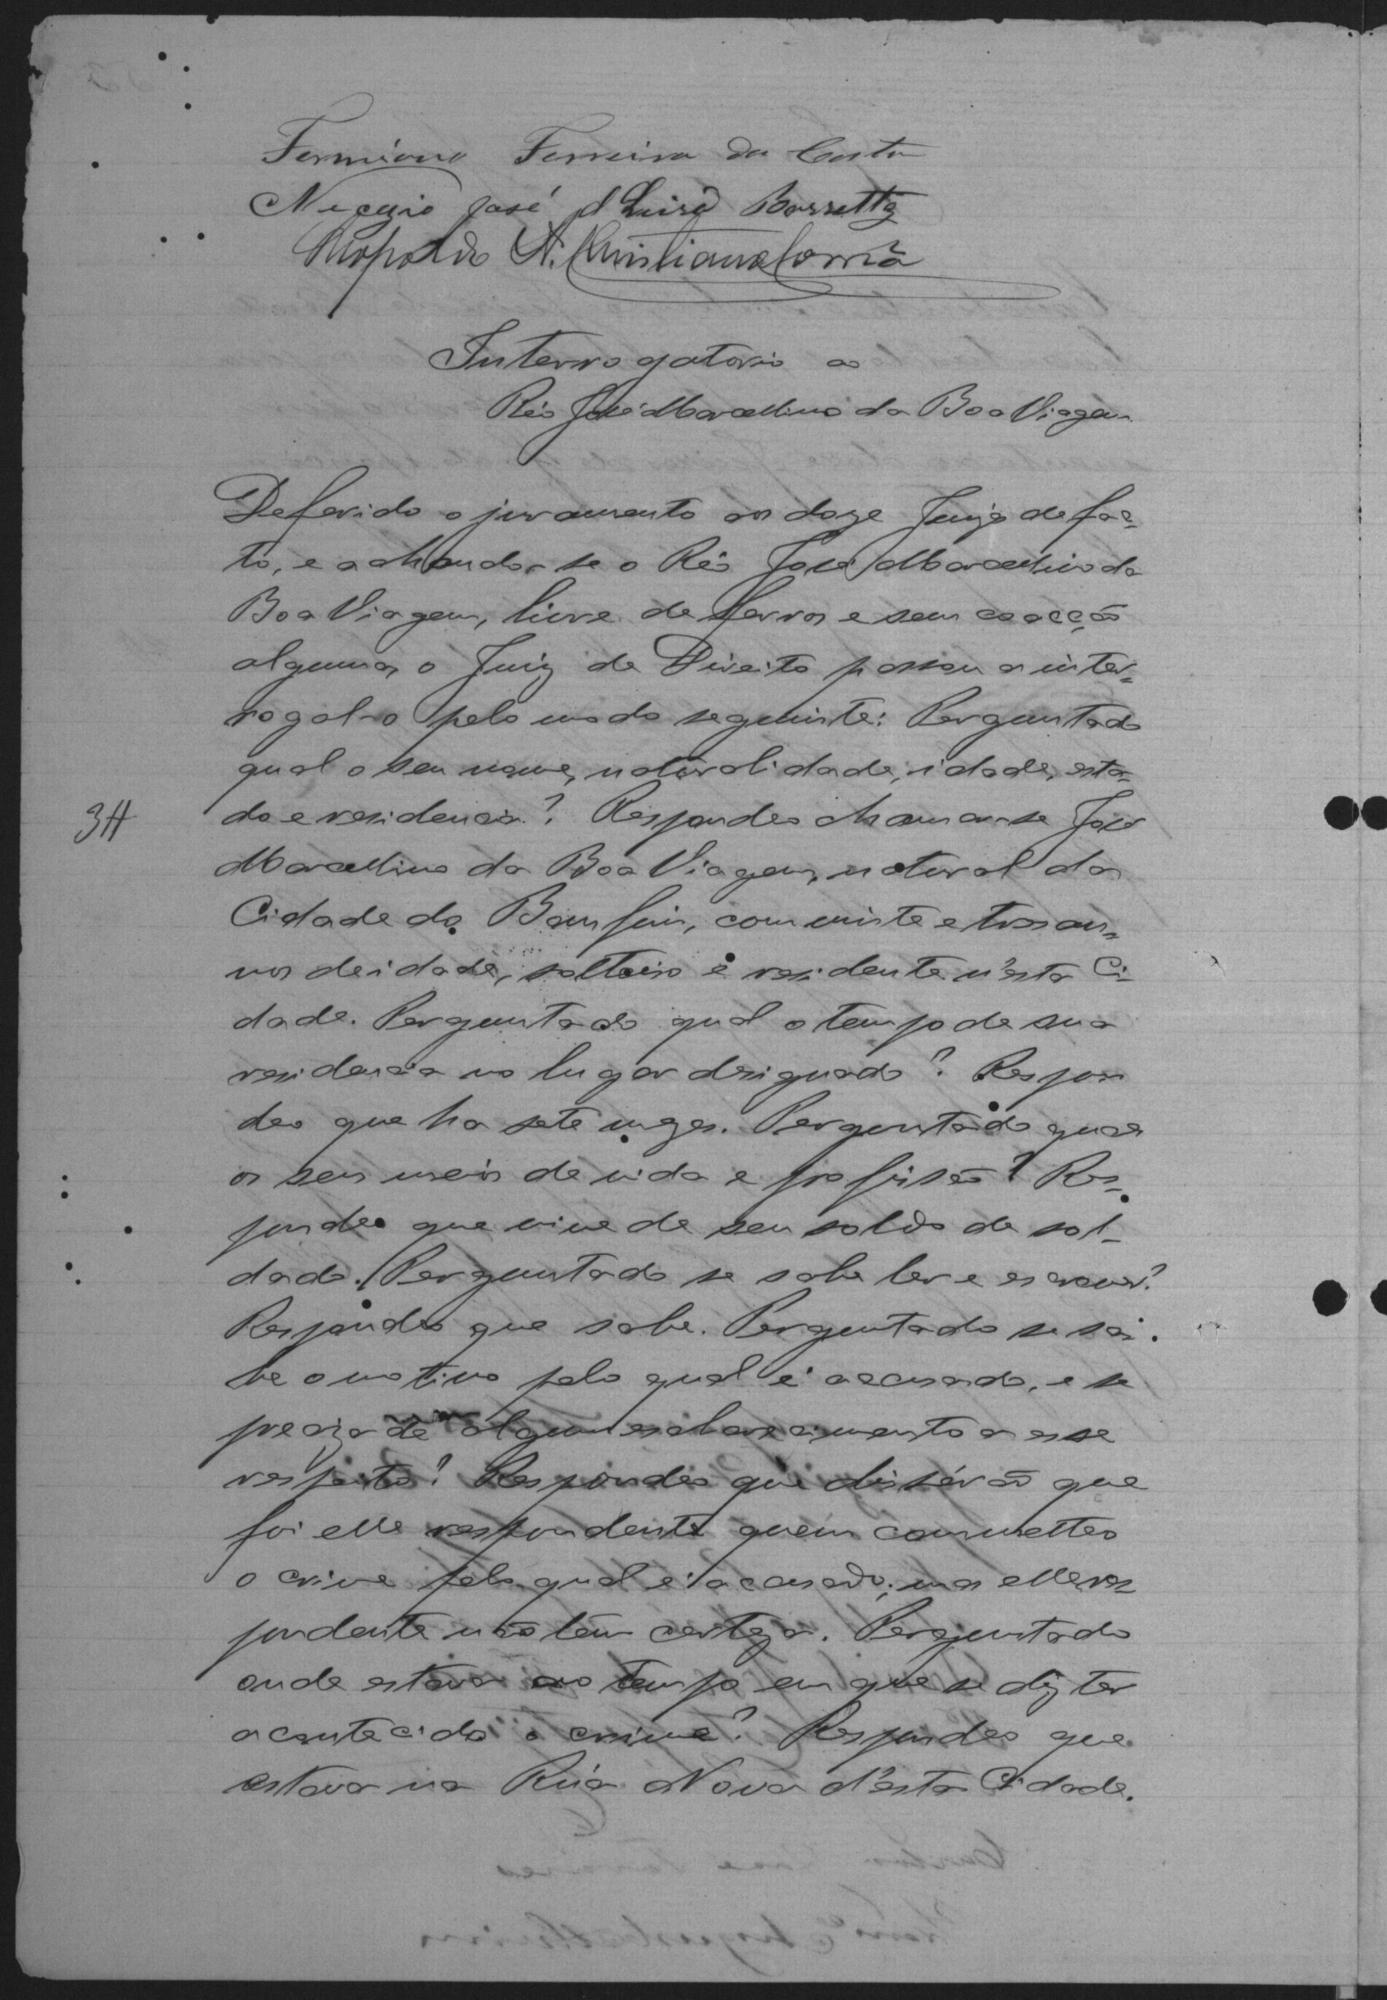 Ferreira da Costa
José
A. Christiano Corrêa
Interrogatorio ao
Réo José Marcellino da Boa Viagem
Deferido o juramento aos doze Juizes de fac-
to, e achando-se o Réo José Marcellino da
Boa Viagem, livre de ferros e sem coacção
alguma, o Juiz de Direito passou a inter-
rogal-o pelo modo seguinte: Perguntado
qual o seu nome, naturalidade, idade, esta-
do e residencia? Respondeo chamar-se José
Marcellino da Boa Viagem, natural da
Cidade do Bomfim, com vinte e tres an-
nos de idade, solteiro e residente n'esta Ci-
dade. Perguntado qual o tempo de sua
residencia no lugar designado? Respon
deo que ha sete mezes. Perguntado quaes
os seus meios de vida e profissão? Res-
pondeo que vive de seu soldo de sol-
dado. Perguntado se sabe ler e escrever?
Respondeo que sabe. Perguntado se sa-
be o motivo pelo qual é accusado, e se
preciza de algum esclarecimento a esse
respeito? Respondeo que dissérão que
foi elle respondente quem commetteo
o crime pelo qual é accusado; mas elle res-
pondente não tem certeza. Perguntado
onde estava ao tempo em que se diz ter
acontecido o crime? Respondeo que
estava na Rua Nova d'esta Cidade.